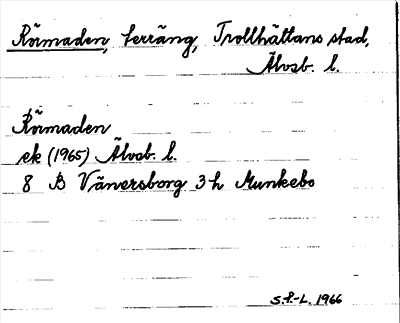 Rörmaden, terräng, Trollhättans stad,
Älvsb. l.
Rörmaden
ek (1965) Älvsb. l.
8 B Vänersborg 3 h Munkebo
S.P.-L. 1966